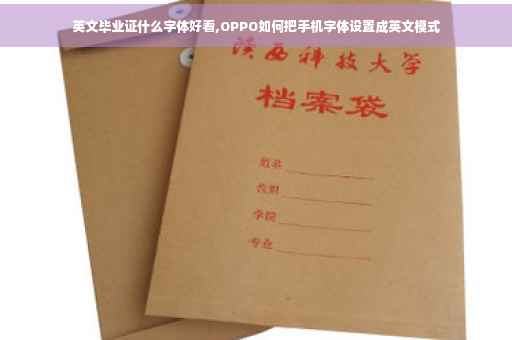 英文毕业证什么字体好看,OPPO如何把手机字体设置成英文模式
陕西科技大学
档案袋
姓名
学院
专业